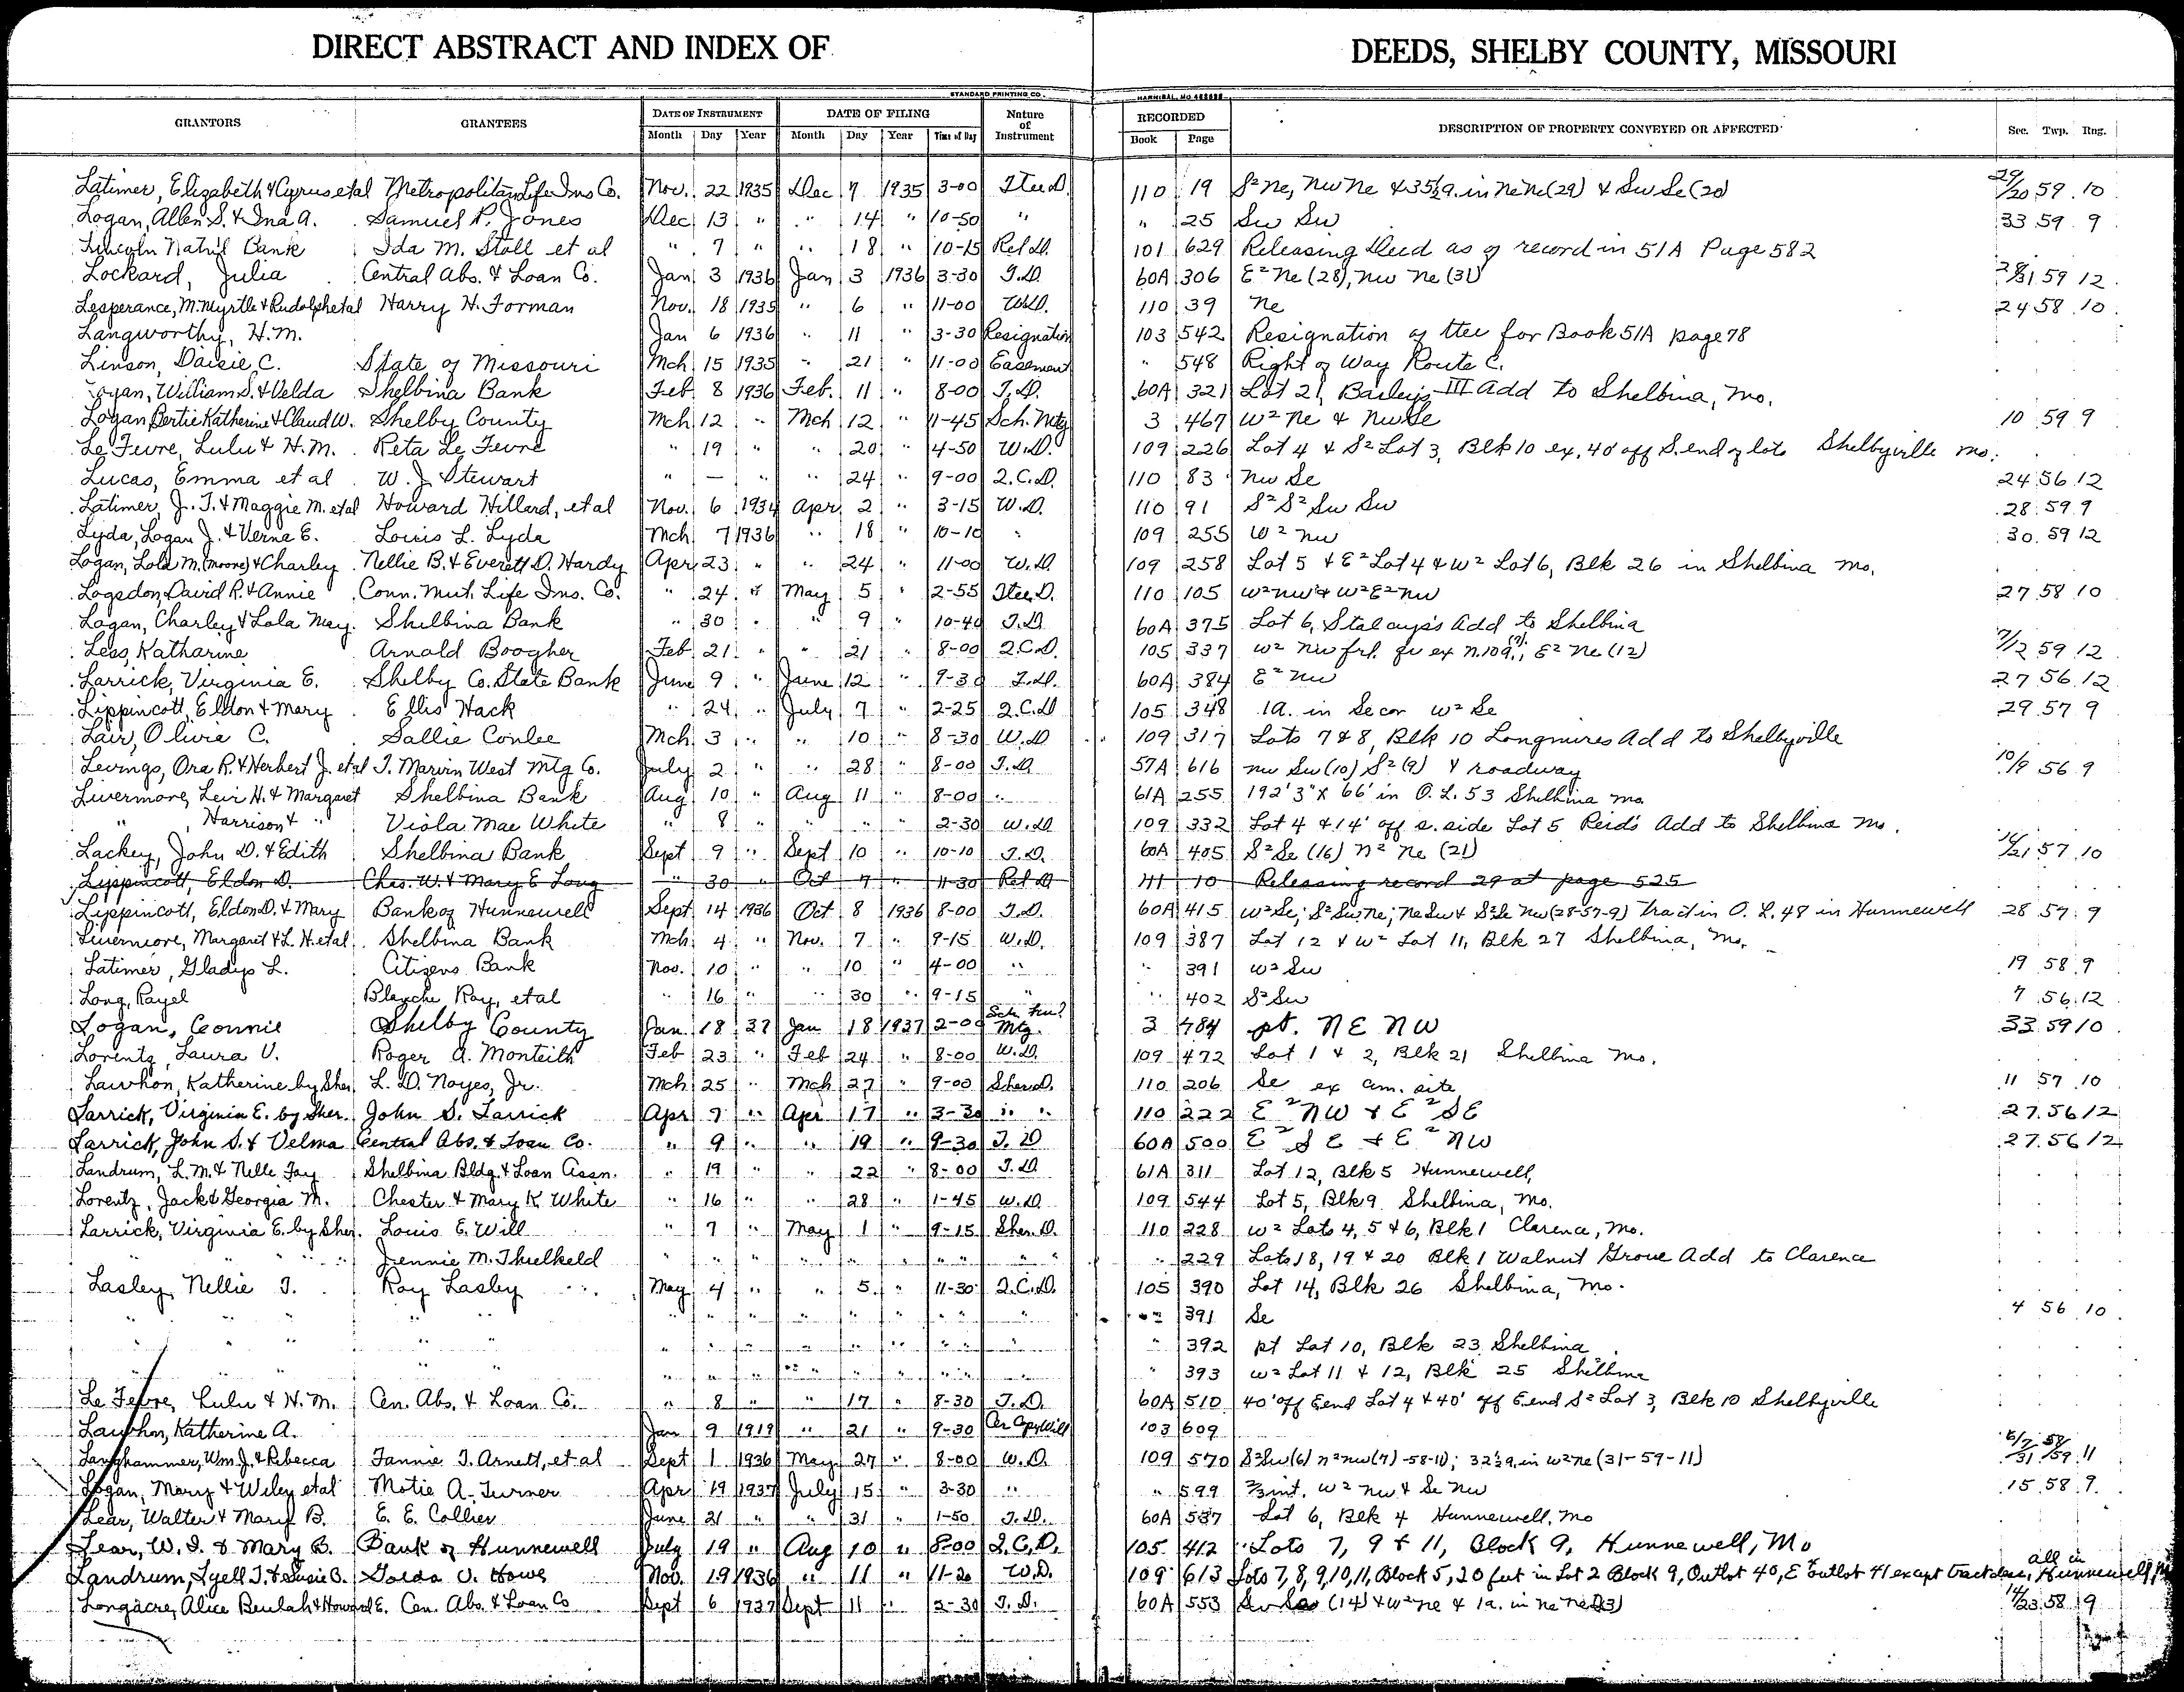 DIRECT ABSTRACT AND INDEX OF DEEDS, SHELBY COUNTY, MISSOURI
STANDARD PRINTING CO. HANNIBAL, MO
GRANTORS GRANTEES DATE OF INSTRUMENT DATE OF FILING Nature of Instrument RECORDED DESCRIPTION OF PROPERTY CONVEYED OR AFFECTED Sec. Twp. Rng.
Month Day Year Month Day Year Time of Day Book Page
Latimer, Elizabeth & Cyrus et al Metropolitan Life Ins Co. Nov. 22 1935 Dec 7 1935 3-00 Ttee D. 110 19 S² Ne, Nw Ne & 35½a. in Ne Ne (29) & Sw Se (20) 29/20 59 10
Logan, Allen S. & Ina A. Samuel P. Jones Dec 13 " " 14 " 10-50 " " 25 Sw Sw 33 59 9
Lincoln Nat'l Bank Ida M. Stoll et al " 7 " " 18 " 10-15 Rel D. 101 629 Releasing Deed as of record in 51A Page 582
Lockard, Julia Central Abs. & Loan Co. Jan 3 1936 Jan 3 1936 3-30 T.D. 60A 306 E² Ne (28), Nw Ne (31) 28/31 59 12
Lesperance, M. Myrtle & Rudolph et al Harry H. Forman Nov. 18 1935 " 6 " 11-00 W.D. 110 39 Ne 24 58 10
Langworthy, H.M. Jan 6 1936 " 11 " 3-30 Resignation 103 542 Resignation of ttee for Book 51A page 78
Linson, Daisie C. State of Missouri Mch 15 1935 " 21 " 11-00 Easement " 548 Right of Way Route C.
Logan, William S. & Velda Shelbina Bank Feb 8 1936 Feb. 11 " 8-00 T.D. 60A 321 Lot 21, Bailey's III Add to Shelbina, Mo.
Logan, Bertie Katherine & Claud W. Shelby County Mch 12 " Mch 12 " 11-45 Sch. Mtg 3 467 W² Ne & Nw Se 10 59 9
Le Fevre, Lulu & H.M. Reta Le Fevre " 19 " " 20 " 4-50 W.D. 109 226 Lot 4 & S² Lot 3, Blk 10 ex. 40' off S. end of lots Shelbyville Mo.
Lucas, Emma et al W. J. Stewart " — " " 24 " 9-00 Q.C.D. 110 83 Nw Se 24 56 12
Latimer, J. T. & Maggie M. et al Howard Hillard, et al Nov. 6 1934 Apr 2 " 3-15 W.D. 110 91 S² S² Sw Sw 28 59 9
Lyda, Logan J. & Verna E. Louis L. Lyda Mch 7 1936 " 18 " 10-10 " 109 255 W² Nw 30 59 12
Logan, Lola M. (Moore) & Charley Nellie B. & Everett D. Hardy Apr 23 " " 24 " 11-00 W.D. 109 258 Lot 5 & E² Lot 4 & W² Lot 6, Blk 26 in Shelbina Mo.
Logsdon, David R. & Annie Conn. Mut. Life Ins. Co. " 24 " May 5 " 2-55 Ttee D. 110 105 W² Nw & W² E² Nw 27 58 10
Logan, Charley & Lola May. Shelbina Bank " 30 " " 9 " 10-40 T.D. 60A 375 Lot 6, Stalcup's Add to Shelbina
Less, Katharine Arnold Boogher Feb 21 " " 21 " 8-00 Q.C.D. 105 337 W² Nw frl. qr ex N. 10a. (7), E² Ne (12) 7/12 59 12
Larrick, Virginia E. Shelby Co. State Bank June 9 " June 12 " 9-30 T.D. 60A 384 E² Nw 27 56 12
Lippincott, Eldon & Mary Ellis Hack " 24 " July 7 " 2-25 Q.C.D 105 348 1a. in Se cor W² Se 29 57 9
Lair, Olivia C. Sallie Conlee Mch 3 " " 10 " 8-30 W.D 109 317 Lots 7 & 8, Blk 10 Longmires Add to Shelbyville
Levings, Ora R. & Herbert J. et al T. Marvin West Mtg Co. July 2 " " 28 " 8-00 T.D. 57A 616 Nw Sw (10) S² (9) & roadway 10/9 56 9
Livermore, Leir H. & Margaret Shelbina Bank Aug 10 " Aug 11 " 8-00 " 61A 255 192'3" x 66' in O.L. 53 Shelbina Mo.
" , Harrison & " Viola Mae White " 8 " " " " 2-30 W.D 109 332 Lot 4 & 14' off S. side Lot 5 Reid's Add to Shelbina Mo.
Lackey, John D. & Edith Shelbina Bank Sept 9 " Sept 10 " 10-10 T.D. 60A 405 S² Se (16) N² Ne (21) 16/21 57 10
Lippincott, Eldon D. Chas. W. & Mary E Long " 30 Oct 7 " 11-30 Rel D 111 10 Releasing record 29 at page 525
Lippincott, Eldon D. & Mary Bank of Hunnewell Sept 14 1936 Oct 8 1936 8-00 T.D. 60A 415 W² Se; S² Sw Ne; Ne Sw & S² Se Nw (28-57-9) Tract in O.L. 48 in Hunnewell 28 57 9
Livermore, Margaret & L. H. et al Shelbina Bank Mch 4 " Nov. 7 " 9-15 W.D. 109 387 Lot 12 & W² Lot 11, Blk 27 Shelbina, Mo.
Latimer, Gladys L. Citizens Bank Nov. 10 " " 10 " 4-00 " " 391 W² Sw 19 58 9
Long, Rayel Blanche Ray, et al " 16 " " 30 " 9-15 " " 402 S² Sw 7 56 12
Logan, Connie Shelby County Jan 18 37 Jan 18 1937 2-00 Sch. Fund Mtg. 3 484 pt. NE NW 33 59 10
Lorentz, Laura V. Roger A. Monteith Feb 23 " Feb 24 " 8-00 W.D. 109 472 Lot 1 & 2, Blk 21 Shelbina Mo.
Lawhon, Katherine by Sher. L. D. Noyes, Jr. Mch 25 " Mch 27 " 9-00 Sher. D. 110 206 Se ex cem. site 11 57 10
Larrick, Virginia E. by Sher. John S. Larrick Apr 7 " Apr 17 " 3-30 " " 110 222 E² NW & E² SE 27 56 12
Larrick, John S. & Velma Central Abs. & Loan Co. " 9 " " 19 " 9-30 T.D 60A 500 E² SE & E² NW 27 56 12
Landrum, L.M. & Nelle Fay Shelbina Bldg. & Loan Assn. " 19 " " 22 " 8-00 T.D 61A 311 Lot 12, Blk 5 Hunnewell,
Lorentz, Jack & Georgia M. Chester & Mary K White " 16 " 28 " 1-45 W.D. 109 544 Lot 5, Blk 9 Shelbina, Mo.
Larrick, Virginia E. by Sher. Louis E. Will " 7 " May 1 " 9-15 Sher. D. 110 228 W² Lots 4, 5 & 6, Blk 1 Clarence, Mo.
" " " " Jennie M. Thielkeld " " " " " " " " " " 229 Lots 18, 19 & 20 Blk 1 Walnut Grove Add to Clarence
Lasley, Nellie T. Ray Lasley May 4 " " 5 " 11-30 Q.C.D. 105 390 Lot 14, Blk 26 Shelbina, Mo.
" " " " " " " " " " " " 391 Se 4 56 10
" " " " " " " " " " " " 392 pt Lot 10, Blk 23 Shelbina
" " " " " " " " " " " " 393 W² Lot 11 & 12, Blk 25 Shelbina
Le Fevre, Lulu & H.M. Cen. Abs. & Loan Co. " 8 " " 17 " 8-30 T.D. 60A 510 40' off E end Lot 4 & 40' off E end S² Lot 3, Blk 10 Shelbyville
Lawhon, Katherine A. Jan 9 1919 " 21 " 9-30 Cer Copy Will 103 609
Langhammer, Wm. J. & Rebecca Fannie T. Arnett, et al Sept 1 1936 May 27 " 8-00 W.D. 109 570 S² Sw (6) N² Nw (7) -58-11; 32½a. in W² Ne (31-59-11) 6/7/31 58/59 11
Logan, Mary & Wiley et al Motie A. Turner Apr 19 1937 July 15 " 3-30 " " 599 ⅔ int. W² Nw & Se Nw 15 58 9
Lear, Walter & Mary B. E. E. Collier June 21 " " 31 " 1-50 T.D. 60A 537 Lot 6, Blk 4 Hunnewell, Mo
Lear, W. I. & Mary B. Bank of Hunnewell July 19 " Aug 10 " 8-00 Q.C.D. 105 412 Lots 7, 9 & 11, Block 9, Hunnewell, Mo
Landrum, Lyell T. & Susie B. Golda V. Howe Nov. 19 1936 " 11 " 11-20 W.D. 109 613 Lots 7, 8, 9, 10, 11, Block 5, 20 feet in Lot 2 Block 9, Outlot 40, E² outlot 41 except tract all in Hunnewell
Longacre, Alice Beulah & Howard E. Cen. Abs. & Loan Co Sept 6 1937 Sept 11 " 2-30 T.D. 60A 553 (14) & W² Ne & 1a. in Ne Ne (23) 14/23 58 9